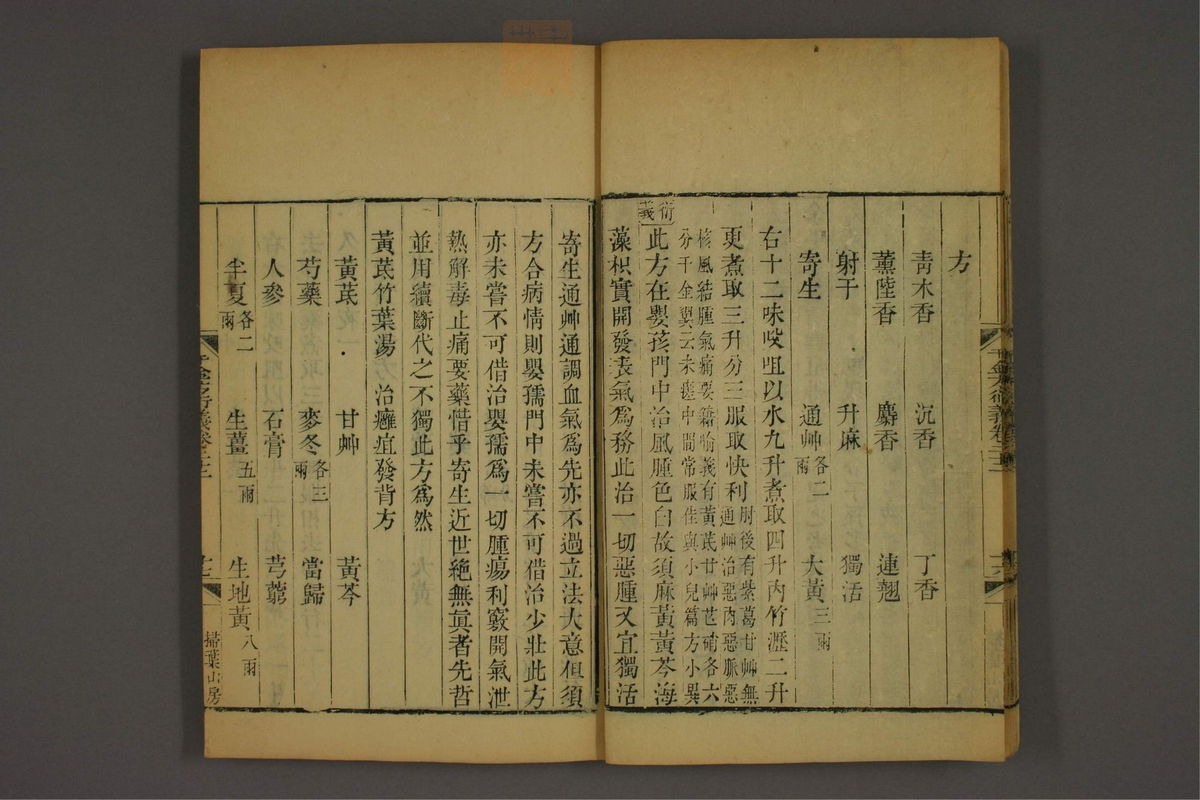 方
青木香 沉香 丁香
薰陸香 麝香 連翹
射干 升麻 獨活
寄生 通艸各二兩 大黃三兩
右十二味㕮咀以水九升煮取四升內竹瀝二升
更煮取三升分三服取快利肘後有紫葛甘艸無通艸治惡肉惡脈惡
核風結腫氣痛要籍喻義有黃芪甘艸芒硝各六分千金翼云未瘥中間常服佳與小兒篇方小異
衍義
此方在嬰孩門中治風腫色白故須麻黃黃芩海
藻枳實開發表氣爲務此治一切惡腫又宜獨活
寄生通艸通調血氣爲先亦不過立法大意但須
方合病情則嬰孺門中未嘗不可借治少壯此方
亦未嘗不可借治嬰孺爲一切腫瘍利竅開氣泄
熱解毒止痛要藥惜乎寄生近世絶無眞者先哲
並用續斷代之不獨此方爲然
黃芪竹葉湯 治癰疽發背方
黃芪 甘艸 黃芩
芍藥 麥冬各三兩 當歸
人參 石膏 芎藭
半夏各二兩 生薑五兩 生地黃八兩
千金方衍義卷二十二
掃葉山房